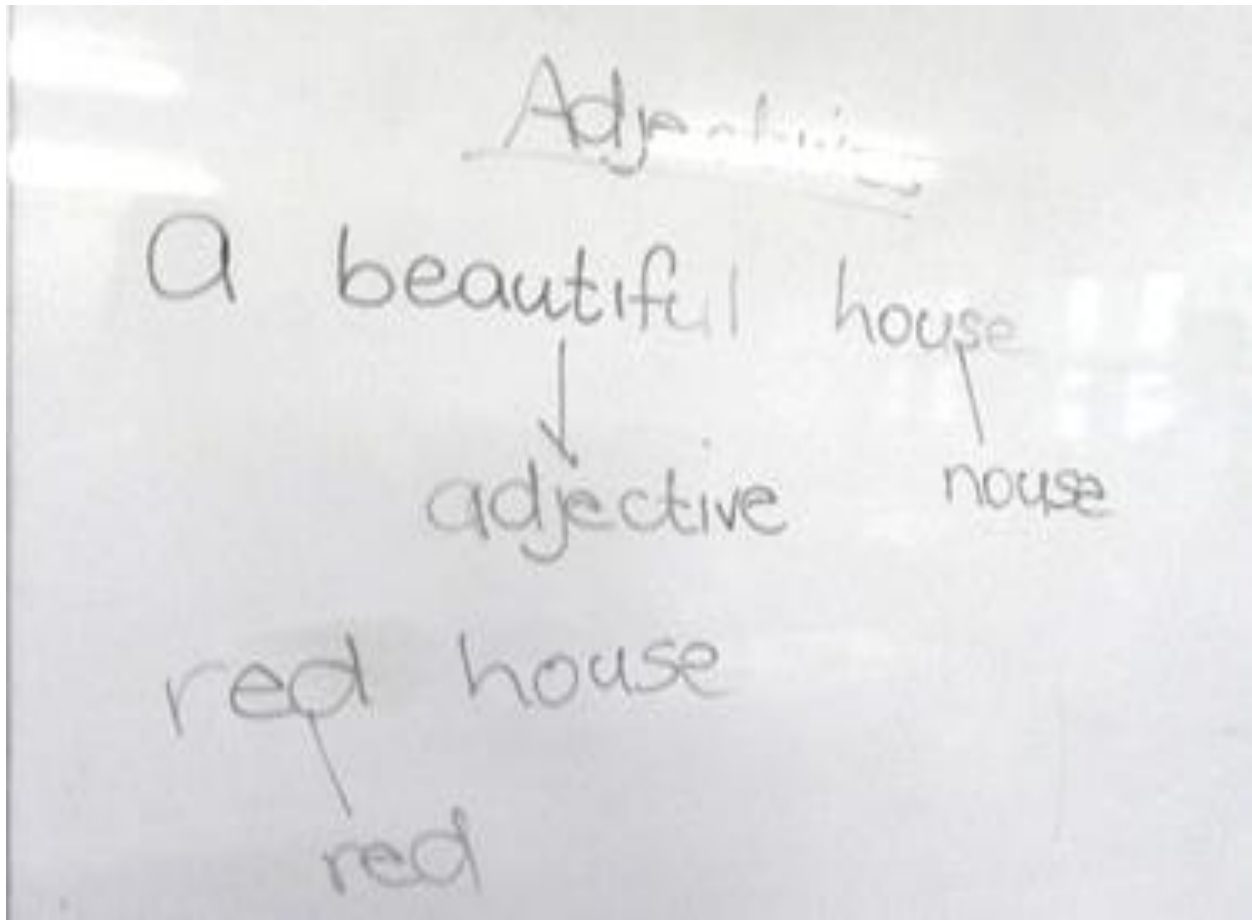 A beautiful house
adjective nouse
red house
red